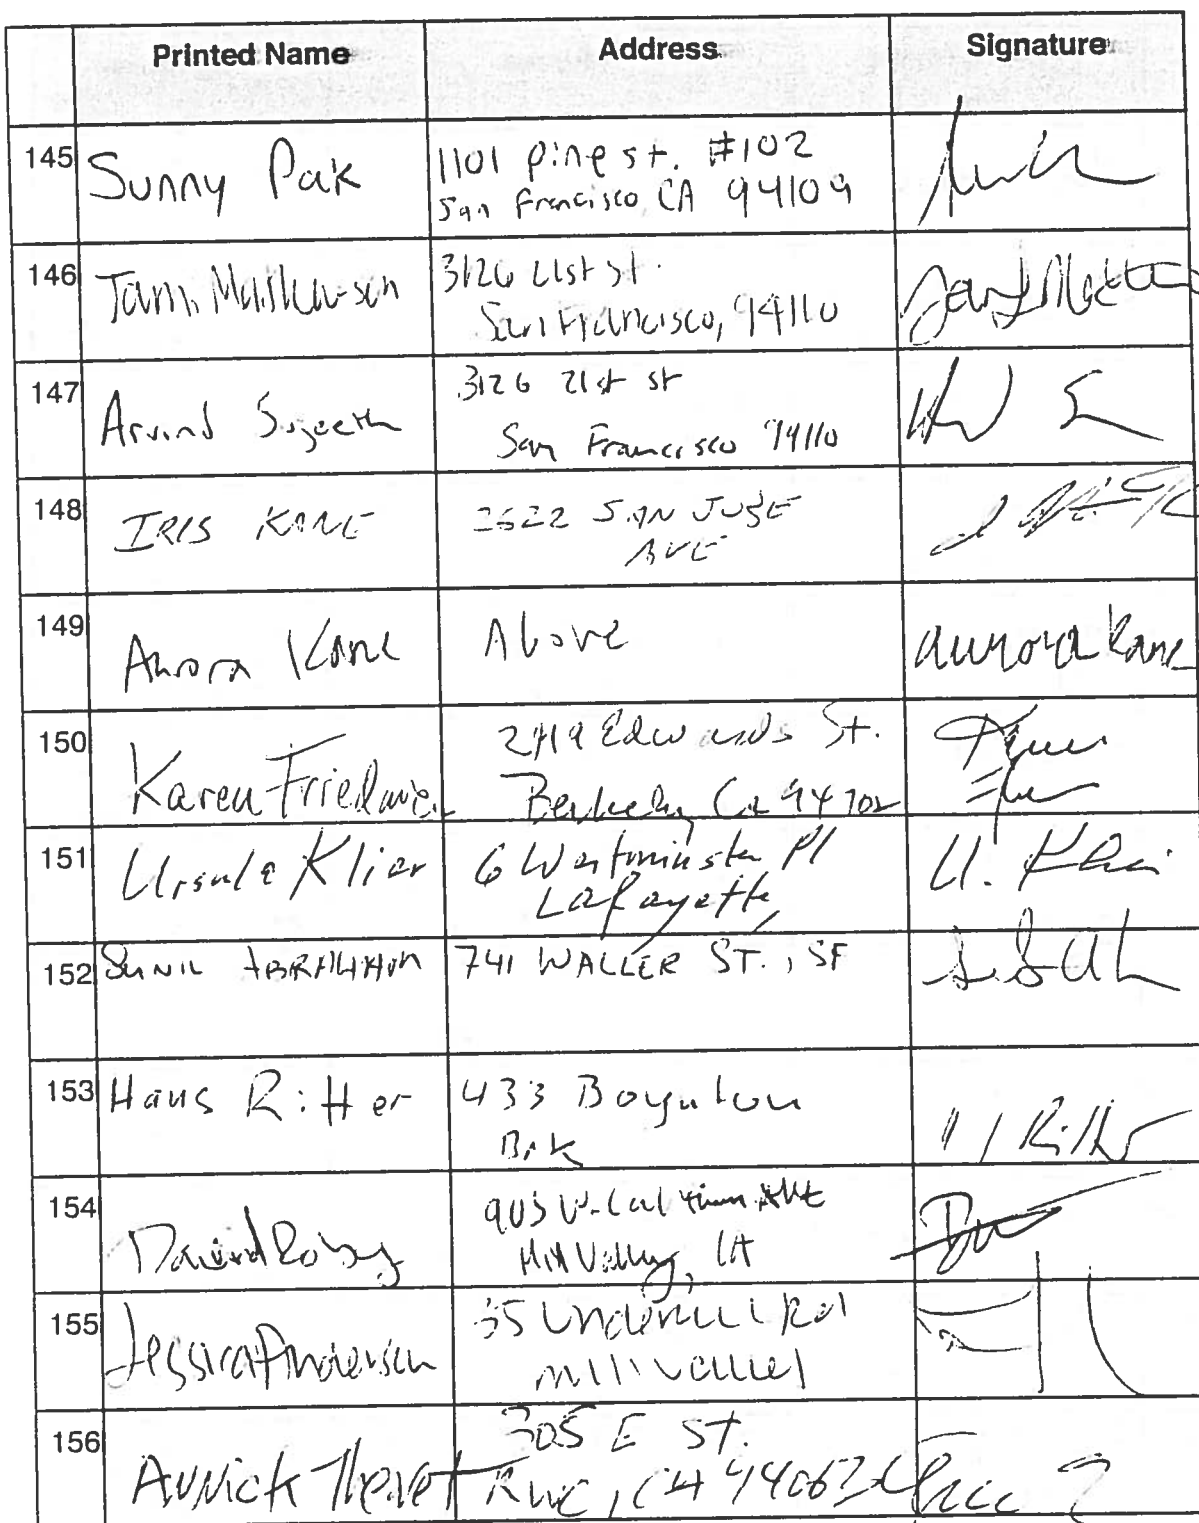 Printed Name Address Signature
145 Sunny Pak 1101 Pine st. #102
San Francisco, CA 94109
146 Tami 3126 21st st.
San Francisco, 94110
147 Arvind Sujeeth 3126 21st st
San Francisco 94110
148 IRIS KANE 2622 SAN JOSE
AVE
149 Aurora Kane Above aurora Kane
150 Karen Friedman Edwards St.
Berkeley Ca 94702
151 Ursula Klier 6 Westminster Pl U. Klier
Lafayette,
152 SUNIL ABRAHAM 741 WALLER ST., SF
153 Hans Ritter 433 Boynton H Ritter
Brk
154 David 903 W. Ave
Mill Valley, CA
155 Jessica Anderson 35 Underhill Rd
mill valley
156 Annick Thevet 305 E ST.
RWC, CA 94063